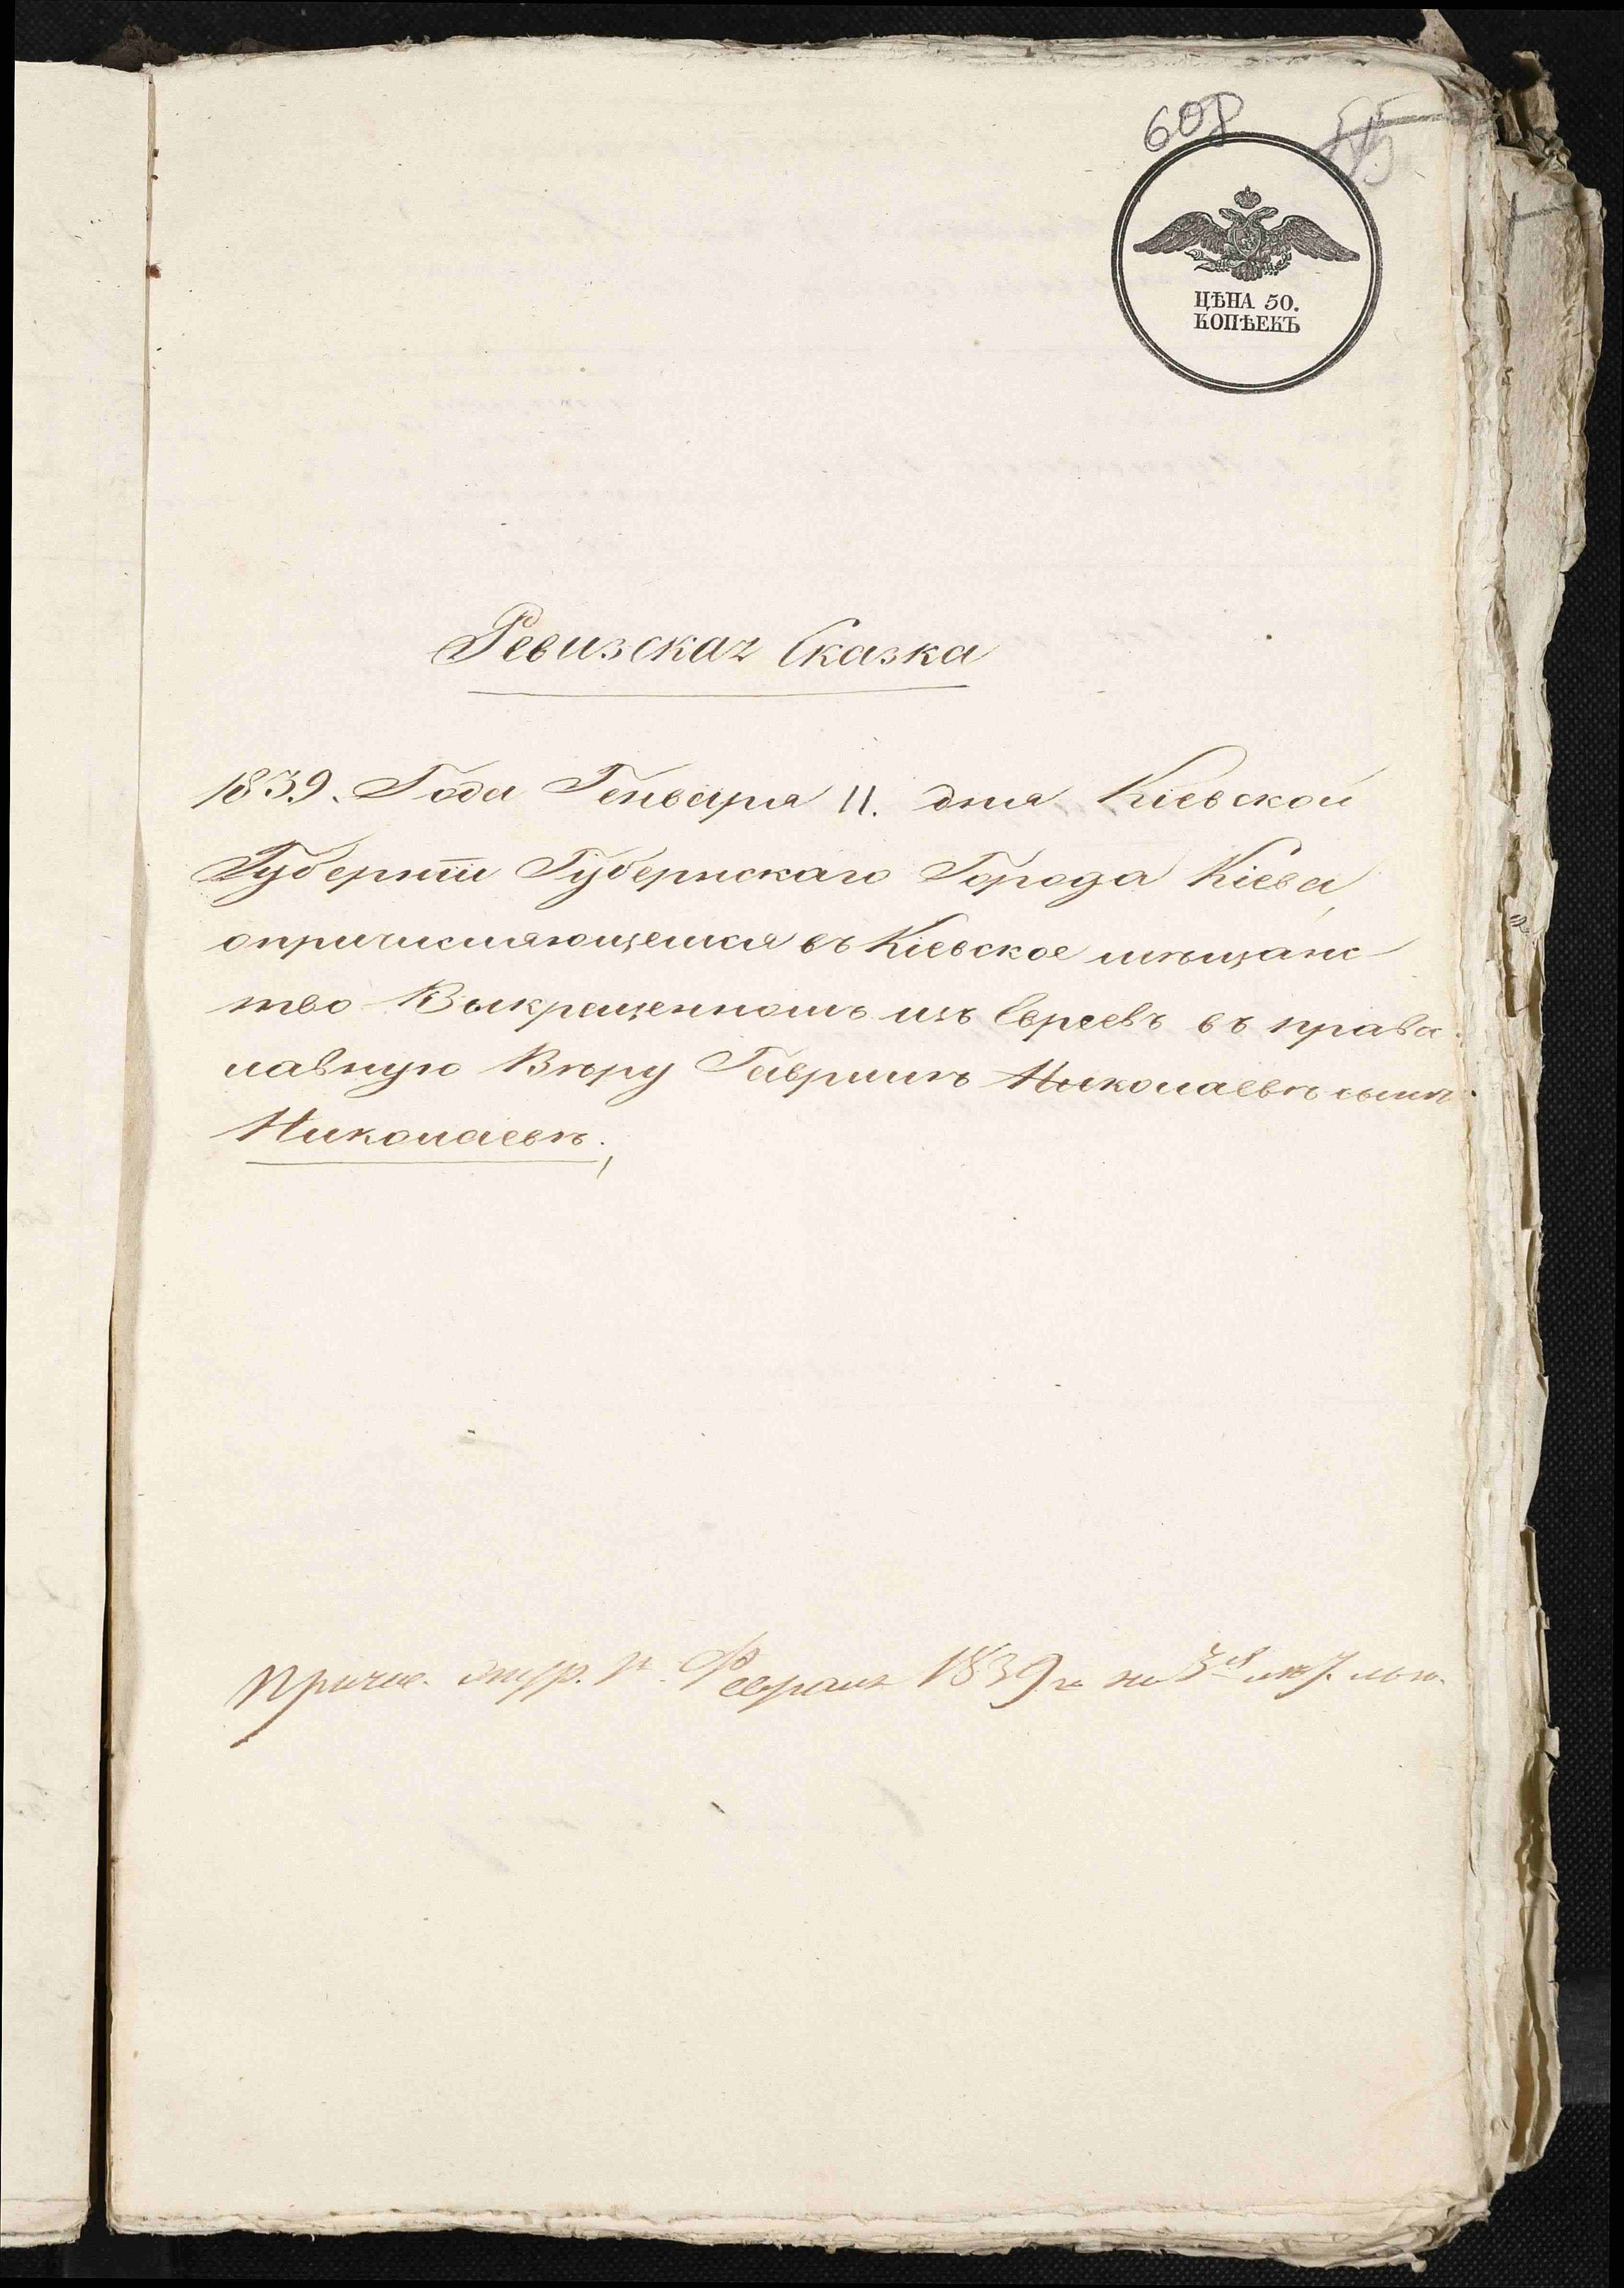 608
ЦѢНА 50.
КОПѢЕКЪ
Ревизская Сказка
1839. Года Генваря 11. дня Кіевской
Губерніи Губернскаго Города Кіева,
опричисляющемся въ Кіевское мѣщанс
тво Выкрещенномъ изъ Евреевъ въ правос
лавную Вѣру Гаврилѣ Николаевѣ сынѣ
Николаевѣ.
Причис. Февраля 1839 г.